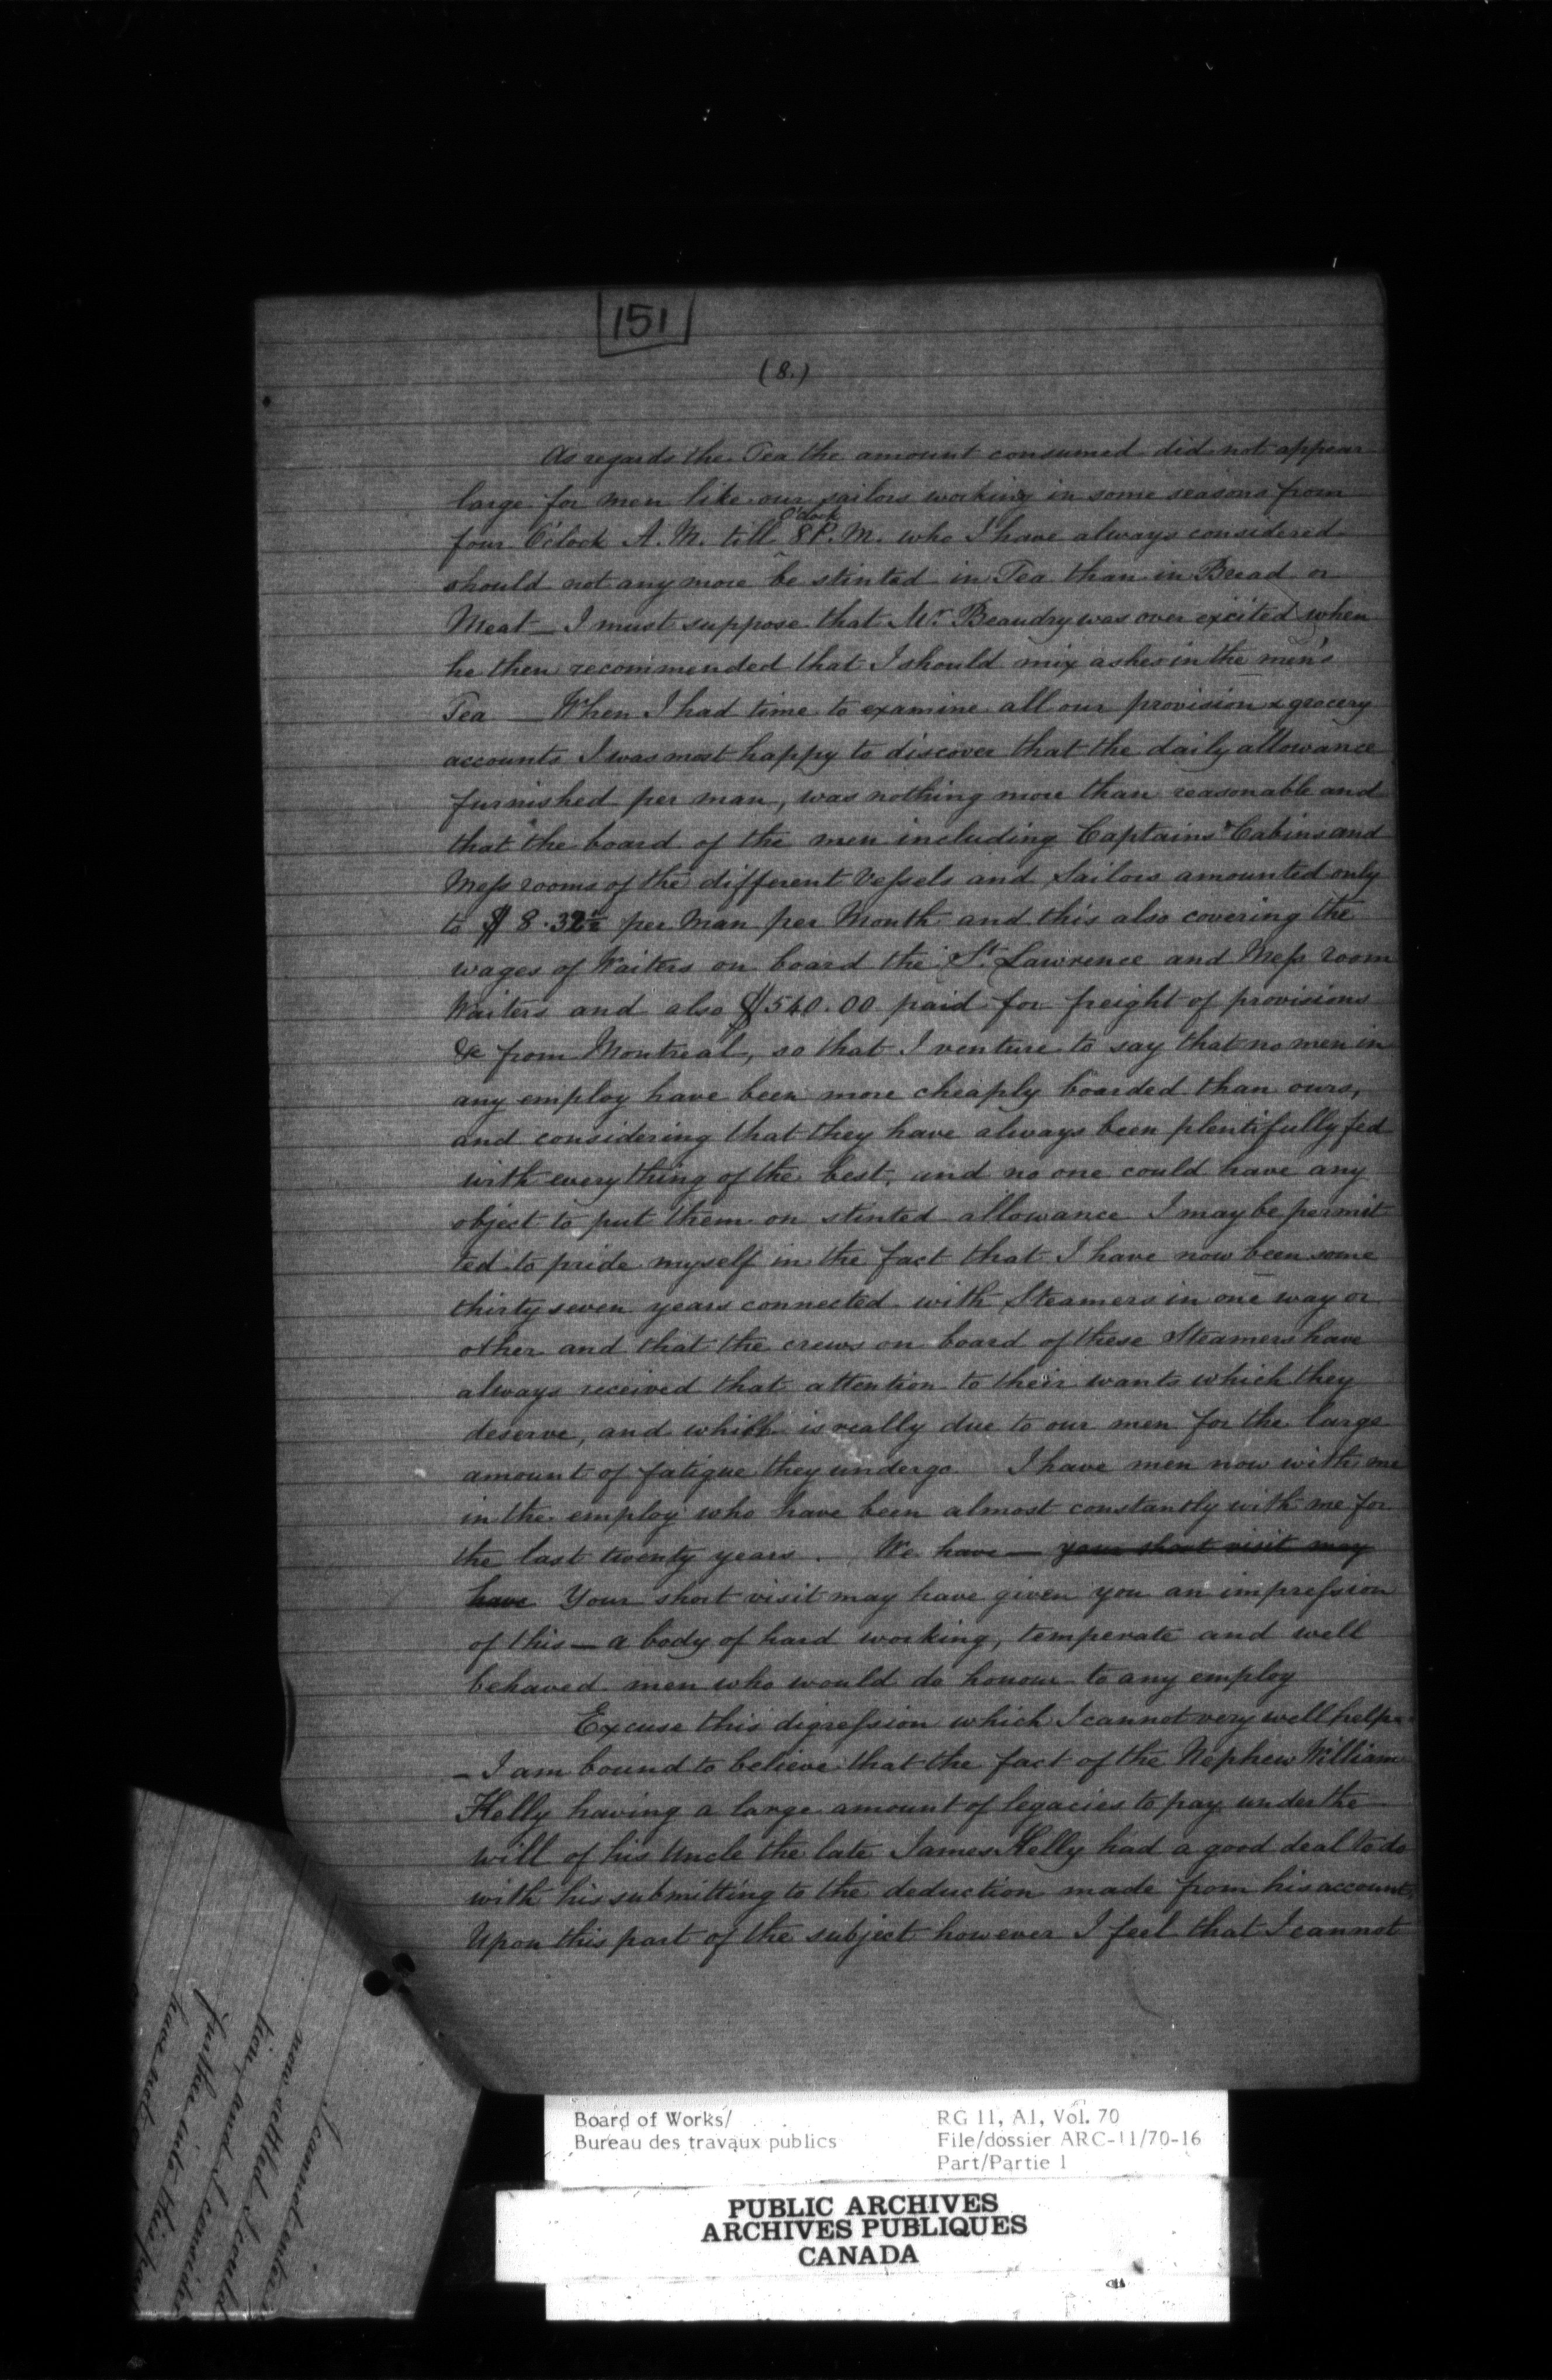 151
(8.)
As regards the Tea the amount consumed did not appear
large for men like our sailors working in some seasons from
four O'clock A.M. till 8 O'clock P.M. who I have always considered
should not any more be stinted in Tea than in Bread or
Meat — I must suppose that Mr. Beaudry was over excited when
he then recommended that I should mix ashes in the men's
Tea — When I had time to examine all our provision & grocery
accounts I was most happy to discover that the daily allowance
furnished per man, was nothing more than reasonable and
that the board of the men including Captains Cabins and
Mess rooms of the different Vessels and Sailors amounted only
to $8.32½ per Man per Month and this also covering the
wages of Waiters on board the St. Lawrence and Mess room
Waiters and also $540.00 paid for freight of provisions
&c from Montreal, so that I venture to say that no men in
any employ have been more cheaply boarded than ours,
and considering that they have always been plentifully fed
with everything of the best, and no one could have any
object to put them on stinted allowance I may be permit
ted to pride myself in the fact that I have now been some
thirty seven years connected with Steamers in one way or
other and that the crews on board of these Steamers have
always received that attention to their wants which they
deserve, and which is really due to our men for the large
amount of fatigue they undergo I have men now with me
in the employ who have been almost constantly with me for
the last twenty years. We have — your short visit may
have Your short visit may have given you an impression
of this — a body of hard working, temperate and well
behaved men who would do honour to any employ
Excuse this digression which I cannot very well help —
— I am bound to believe that the fact of the Nephew William
Kelly having a large amount of legacies to pay under the
will of his Uncle the late James Kelly had a good deal to do
with his submitting to the deduction made from his accounts,
Upon this part of the subject however I feel that I cannot
I cannot
now settled I could
and I consider
further into this
have not
Board of Works/
Bureau des travaux publics
RG 11, A1, Vol. 70
File/dossier ARC-11/70-16
Part/Partie 1
PUBLIC ARCHIVES
ARCHIVES PUBLIQUES
CANADA